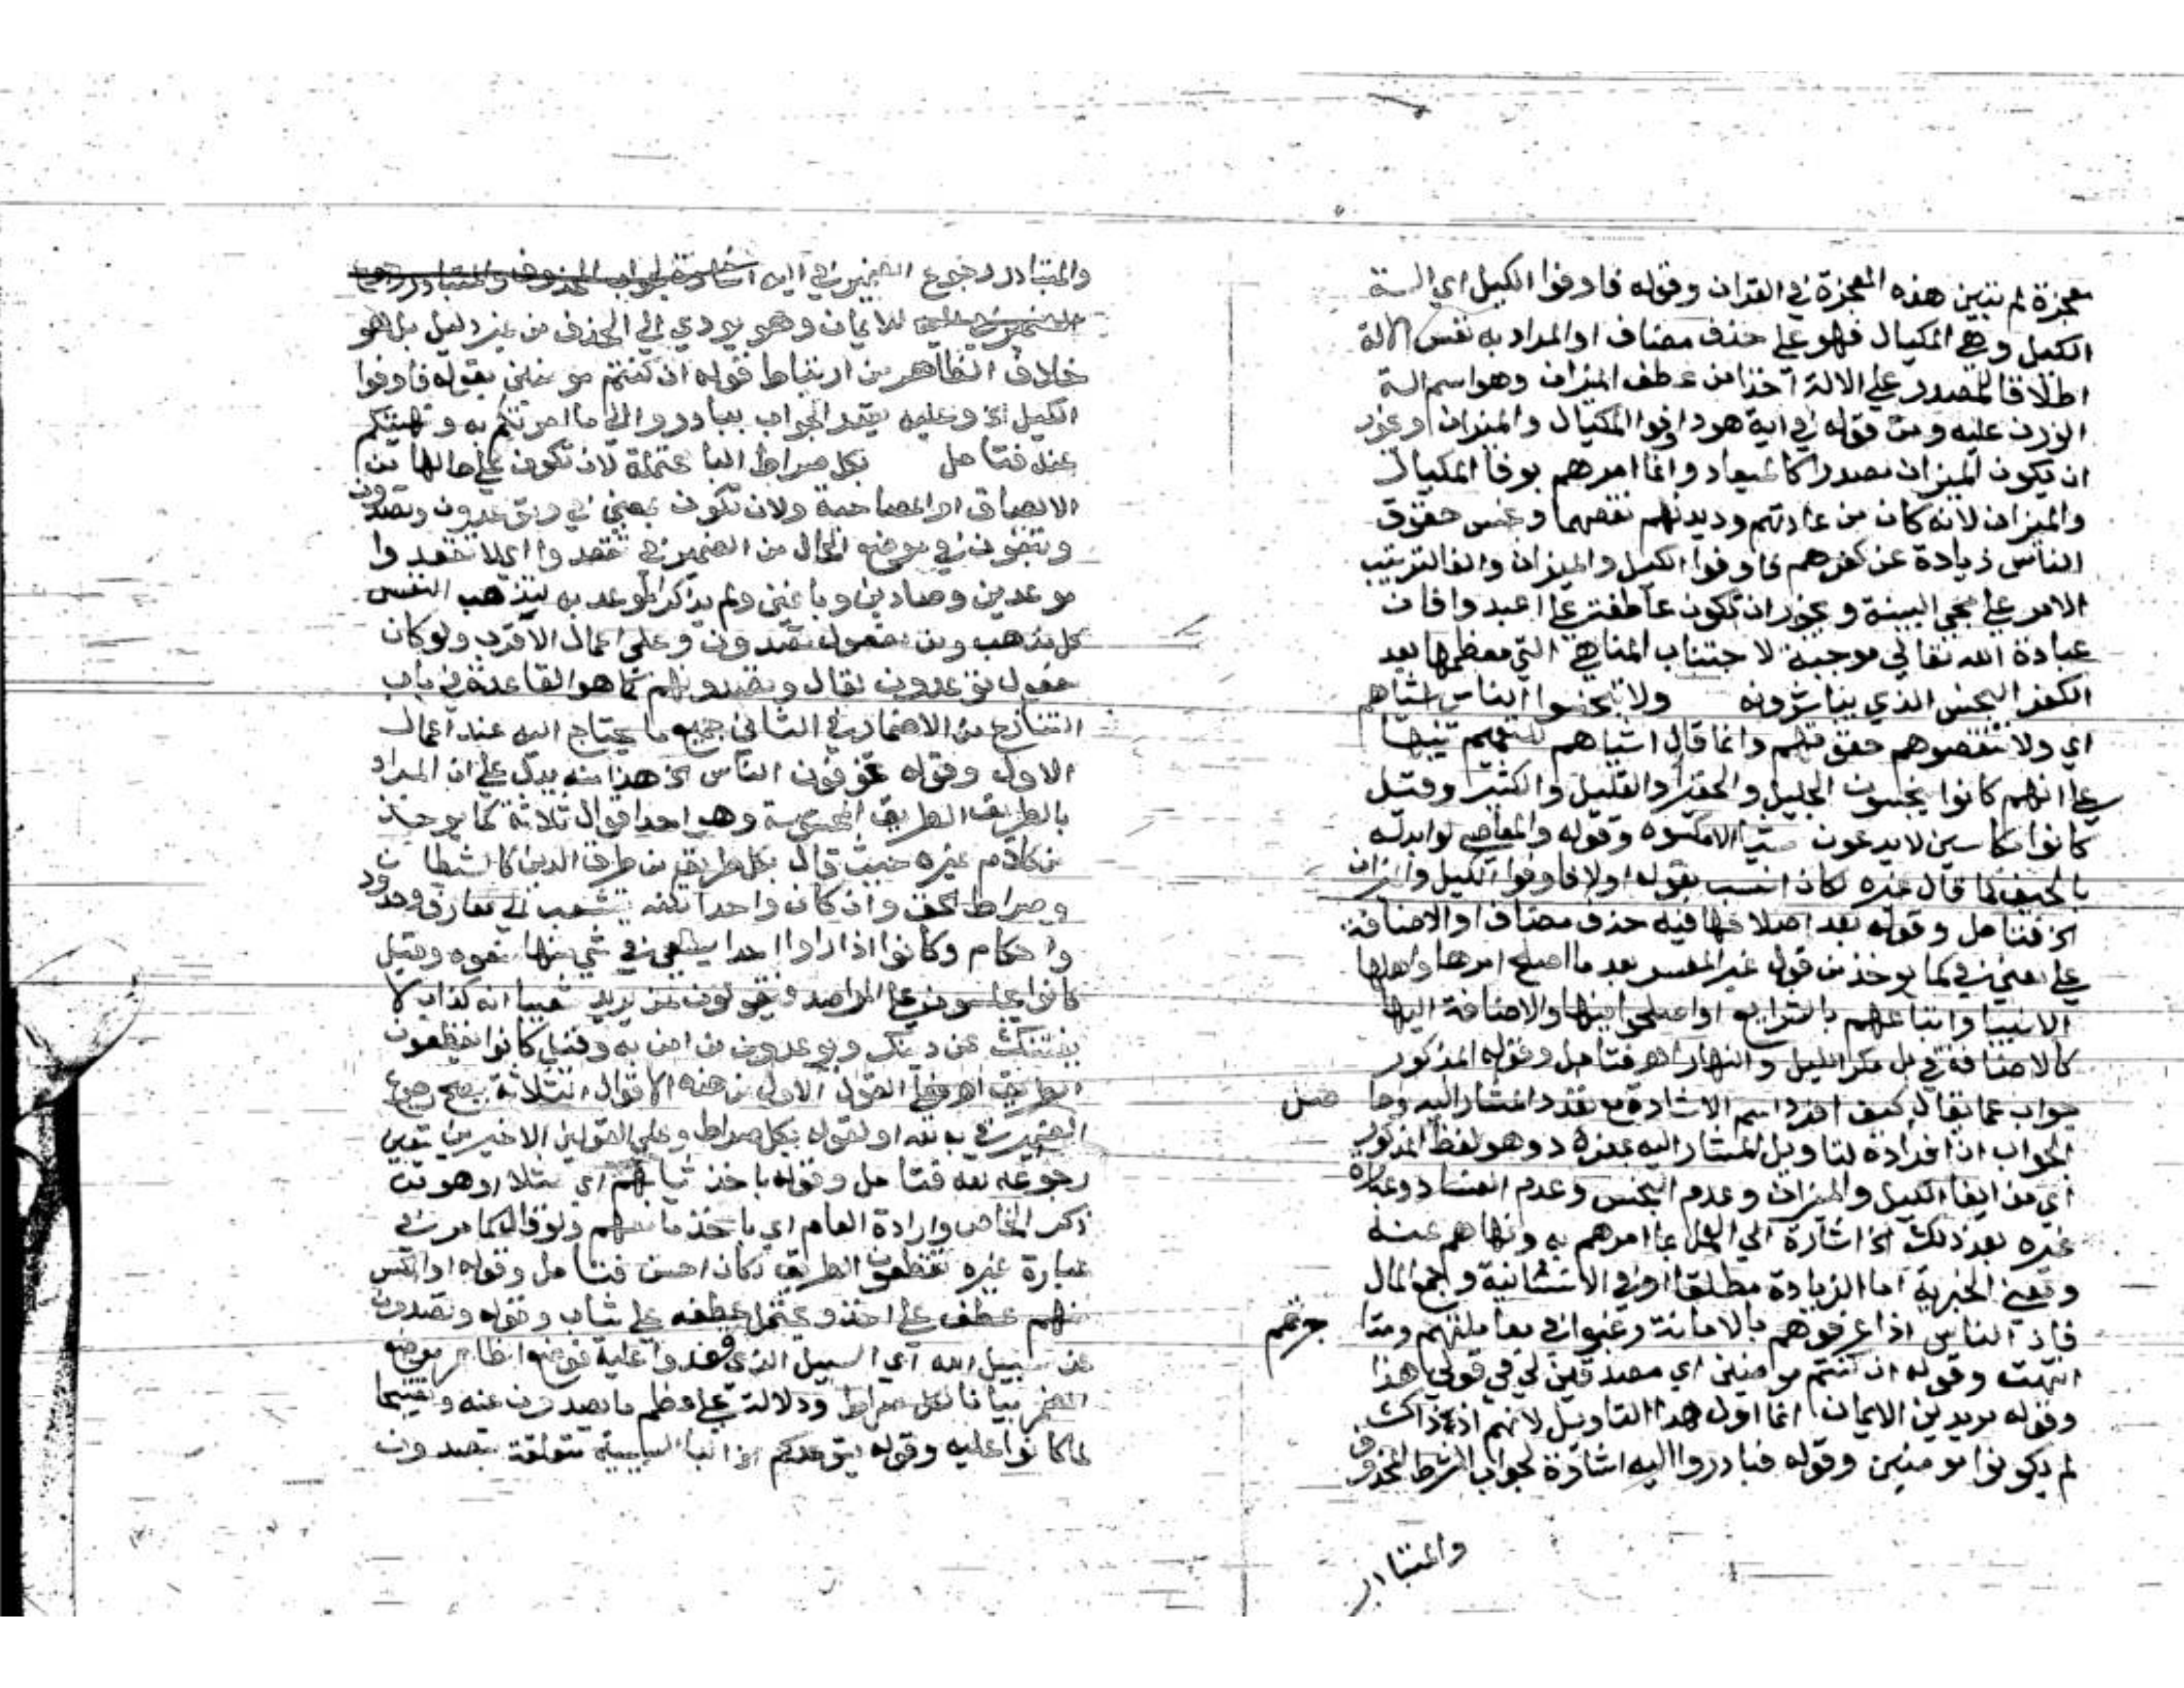 معجزة لم تبين هذه المعجزة في القران وقوله فاوفوا الكيل اي الة
الكيل وهي المكيال فهو علي حذف مضاف او المراد به نفس الالة
اطلاقا للمصدر علي الالة اخذا من عطف الميزان وهو اسم الة
الوزن عليه ومن قوله في اية هود اوفوا المكيال والميزان او يجوز
ان يكون الميزان مصدرا كالميعاد وانما امرهم بوفا المكيال
والميزان لانه كان من عادتهم وديدنهم نقصهما وبخس حقوق
الناس زيادة عن كفرهم فاوفوا الكيل والميزان والفا لترتيب
الامر علي مجي البينة ويجوز ان تكون عاطفة علي اعبدوا فان
عبادة الله تعالي موجبة لاجتناب المناهي التي معظمها بعد
الكفر البخس الذي يباشرونه ولا تبخسوا الناس اشياهم
اي ولا تنقصوهم حقوقهم وانما قال اشياهم للتعميم تنبيها
علي انهم كانوا يبخسون الجليل والحقير والقليل والكثير وقيل
كانوا مكاسين لا يدعون شيا الا مكسوه وقوله والمعاصي لو ابدله
بالحيف كما قال غيره لكان انسب بقوله اولا فاوفوا الكيل والميزان
الخ فتامل وقوله بعد اصلاحها فيه حذف مضاف او الاضافة
علي معني في كما يوخذ من قول غير المفسر بعد ما اصلح امرها واهلها
الانبيا واتباعهم بالشرايع او اصلحوا فيها والاضافة اليها
كالاضافة في بل مكر الليل والنهار اهـ فتامل وقوله المذكور
جواب عما يقال كيف افرد اسم الاشارة مع تعدد المشار اليه وحا صل
الجواب ان افراده لتاويل المشار اليه بمفرد وهو لفظ المذكور
اي من ايفا الكيل والميزان وعدم البخس وعدم الفساد وعبارة
غيره بعد ذلك الخ اشارة الي العمل بما امرهم به ونهاهم عنه
ومعني الخيرية اما الزيادة مطلقا او في الانسانية وجمع المال
فان الناس اذا عرفوهم بالامانة رغبوا في معاملتهم ومتا جرتهم
انتهت وقوله ان كنتم مومنين اي مصدقين لي في قولي هذا
وقوله مريدين الايمان انما اول هذا التاويل لانهم اذ ذاك
لم يكونوا مومنين وقوله فبادروا اليه اشارة لجواب الشرط المحذوف
والمتبادر
والمتبادر رجوع الضمير في اليه اشارة لجواب المحذوف والمتبادر رجوع
الضمير في اليه للايمان وهو يودي الي الحذف من غير دليل بل هو
خلاف الظاهر من ارتباط قوله ان كنتم مومنين بقوله فاوفوا
الكيل الخ وعليه يقدر الجواب ببادروا الي ما امرتكم به ونهيتكم
عنه فتامل بكل صراط البا محتملة لان تكون علي حالها من
الالصاق او المصاحبة ولان تكون بمعني في وتوعدون وتصدون
وتبغون في موضع الحال من الضمير في تقعدوا اي لا تقعدوا
موعدين وصادين وباغين ولم يذكر الموعد به لتذهب النفس
كل مذهب ومن مفعول تصدون وعلي اعمال الاقرب ولو كان
مفعول توعدون لقال وتصدونهم كما هو القاعدة في باب
التنازع من الاضمار في الثاني جميع ما يحتاج اليه عند اعمال
الاول وقوله تخوفون الناس الخ هذا منه يدل علي ان المراد
بالطريق الطريق المحسوسة وهو احد اقوال ثلاثة كما يوخذ
من كلام غيره حيث قال بكل طريق من طرق الدين كالشيطان
وصراط الحق وان كان واحدا لكنه يتشعب الي معارف وحدود
واحكام وكانوا اذا راوا احدا يسعي في شي منها منعوه وقيل
كانوا يجلسون علي المراصد ويقولون لمن يريد شعيبا انه كذاب لا
يفتنك عن دينك ويوعدون من امن به وقيل كانوا يقطعون
الطريق اهـ فعلي القول الاول من هذه الاقوال الثلاثة يصح رجوع
الضمير في به لله او لقوله بكل صراط وعلي القولين الاخيرين يتعين
رجوعه لله فتامل وقوله باخذ ثيابهم اي مثلا او هو من
ذكر الخاص وارادة العام اي باخذ ما معهم ولو قال كما مر في
عبارة غيره تقطعون الطريق لكان احسن فتامل وقوله او المكس
منهم عطف علي اخذ ويحتمل عطفه علي ثياب وقوله وتصدون
عن سبيل الله اي السبيل الذي قعدوا عليه فوضع الظاهر موضع
المضمر بيانا لكل صراط ودلالة علي عظم ما يصدون عنه وتقبيحا
لما كانوا عليه وقوله بتوعدكم الخ البا السببية متعلقة بتصدون